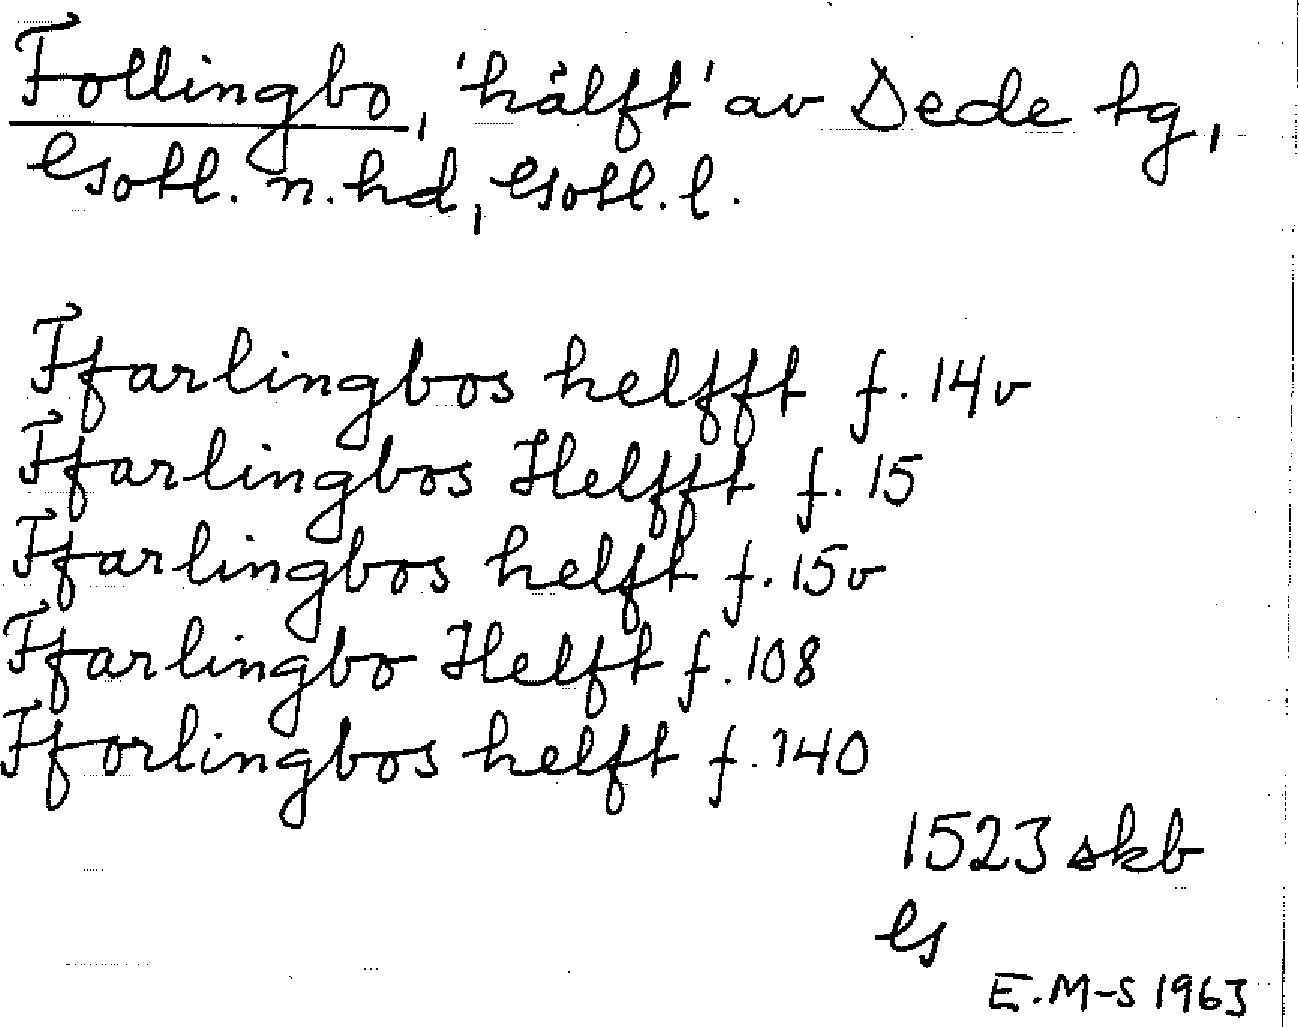 Follingbo, 'hälft' av Dede tg,
Gotl. n. hd, Gotl. l.
Ffarlingbos helfft f. 14v
Ffarlingbos Helfft f. 15
Ffarlingbos helft f. 15v
Ffarlingbo Helft f. 108
Fforlingbos helft f. 140
1523 skb
G
E. M-S 1963